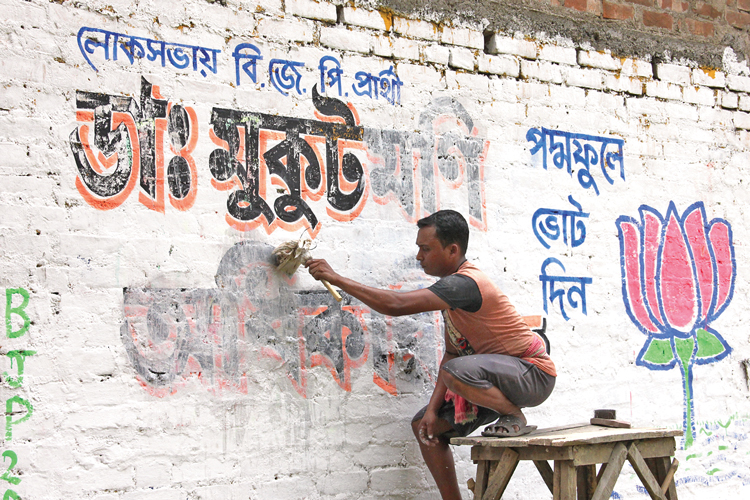 লোকসভায় বি.জে. পি. প্রার্থী
ডাঃ মুকুট মণি
অধিকারী
পদ্মফুলে
ভোট
দিন
B
J
P
2